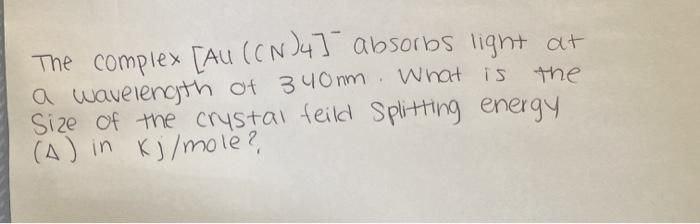 The complex [AU (CN)4]⁻ absorbs light at
a wavelength of 340nm. What is the
Size of the crystal feild Splitting energy
(Δ) in Kj/mole?